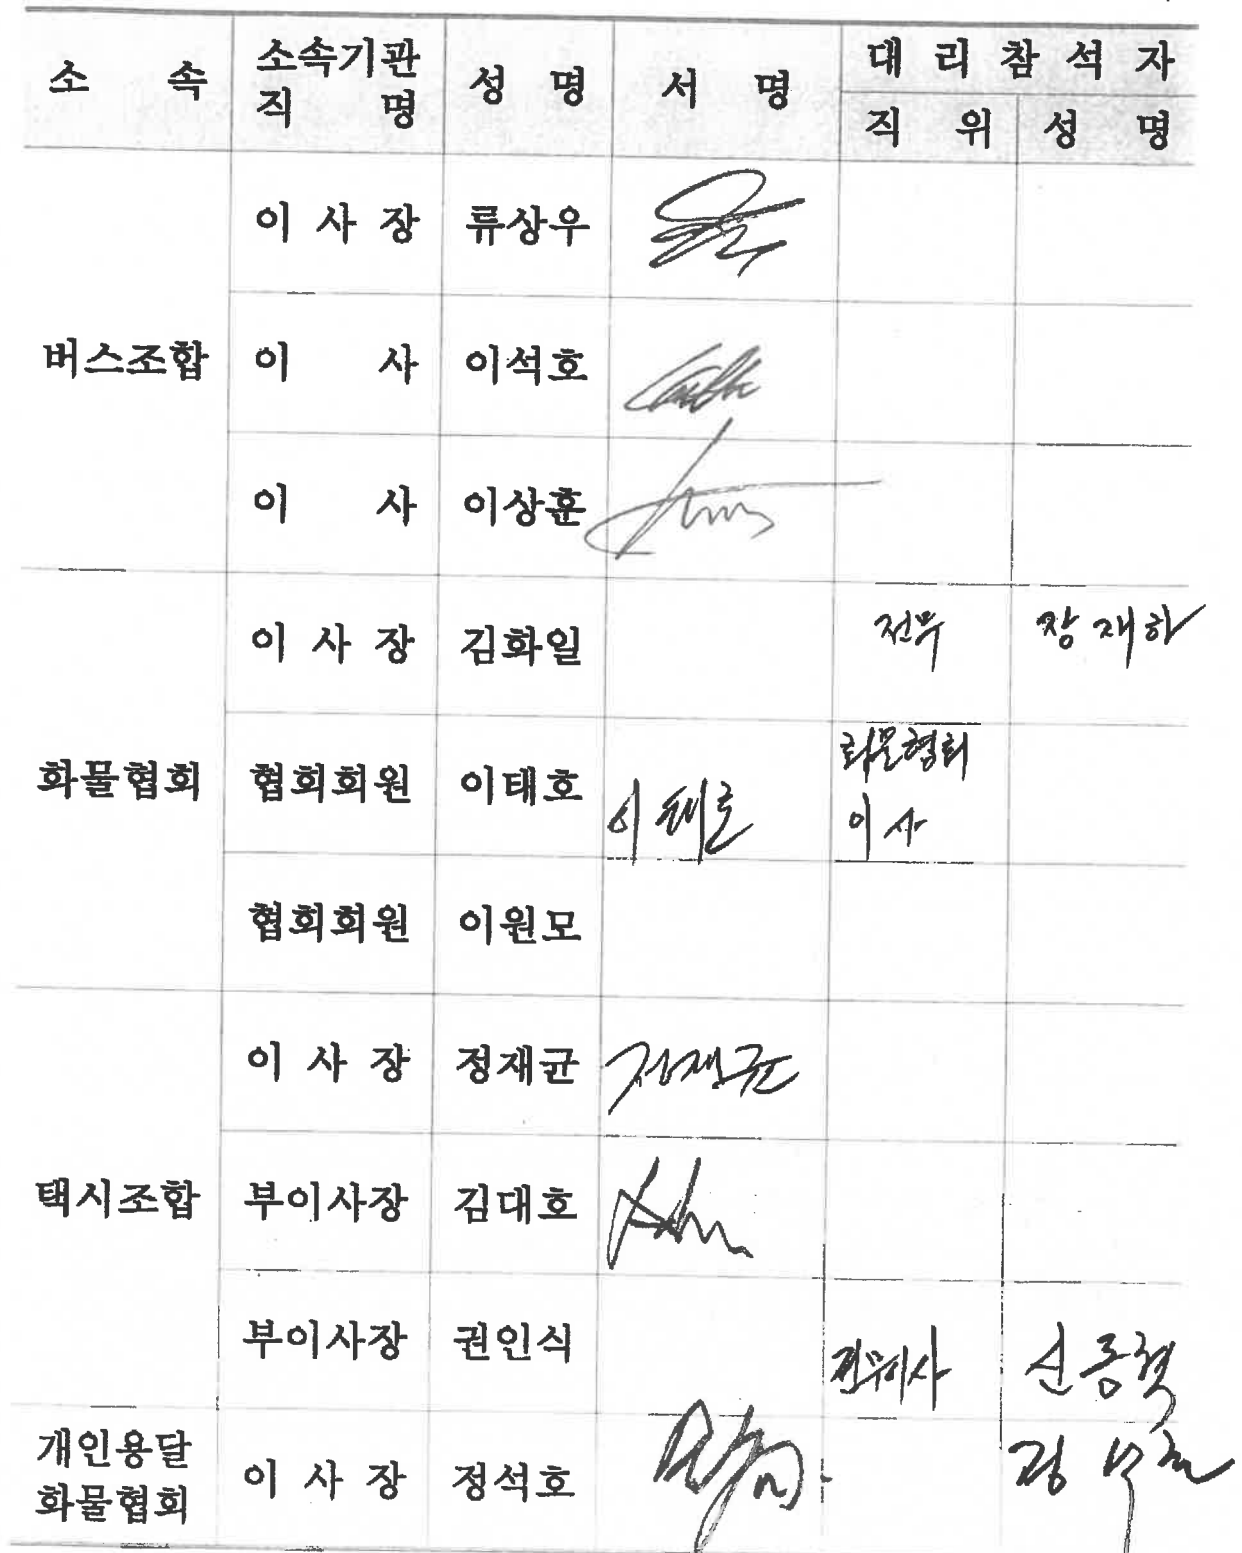 소 속 소속기관 직 명 성 명 서 명 대 리 참 석 자
직 위 성 명
버스조합
이 사 장 류상우
이 사 이석호
이 사 이상훈
화물협회
이 사 장 김화일 전무 장재하
협회회원 이태호 이태호 화물협회 이사
협회회원 이원모
택시조합
이 사 장 정재균 정재균
부이사장 김대호
부이사장 권인식 전무이사
개인용달 화물협회
이 사 장 정석호